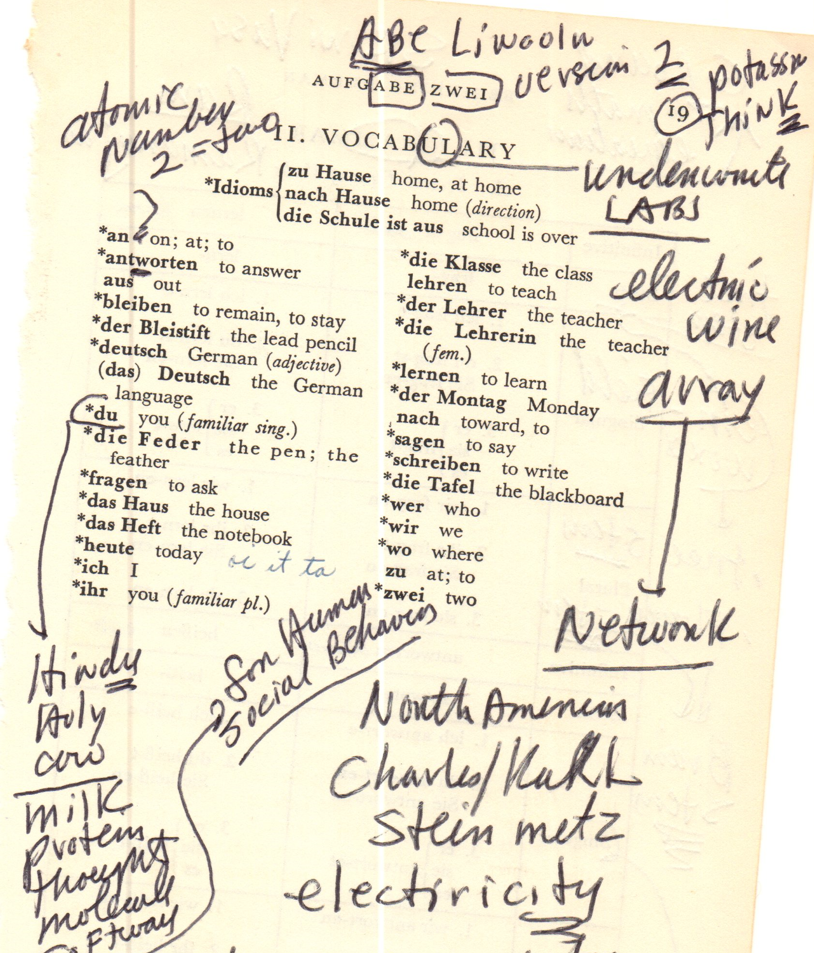 ABe Lincoln
version 2
AUFGABE ZWEI
potassm
19
THINK
atomic
Number
2 = two
II. VOCABULARY
underwrite
LABS
*Idioms
zu Hause home, at home
nach Hause home (direction)
die Schule ist aus school is over
*an on; at; to
*antworten to answer
aus out
*bleiben to remain, to stay
*der Bleistift the lead pencil
*deutsch German (adjective)
(das) Deutsch the German
language
*du you (familiar sing.)
*die Feder the pen; the
feather
*fragen to ask
*das Haus the house
*das Heft the notebook
*heute today
*ich I
*ihr you (familiar pl.)
*die Klasse the class
lehren to teach
*der Lehrer the teacher
*die Lehrerin the teacher
(fem.)
*lernen to learn
*der Montag Monday
nach toward, to
*sagen to say
*schreiben to write
*die Tafel the blackboard
*wer who
*wir we
*wo where
zu at; to
*zwei two
electric
wire
array
Network
North American
Charles/KaRL
Stein metz
electiricity
For Human
Social Behavior
Hindu
Holy
cow
milk
protein
thought
molecule